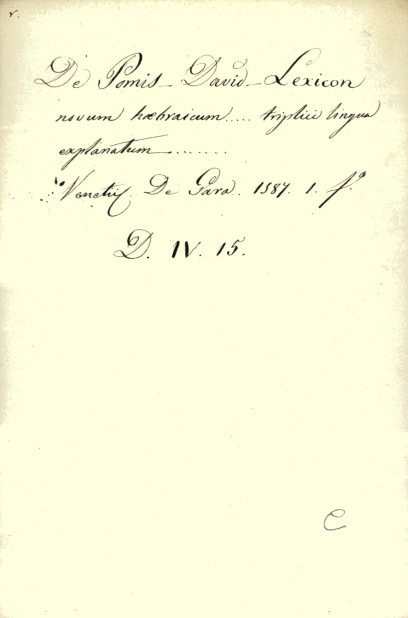 r.
De Pomis - David - Lexicon
novum hæbraicum..... triplici lingua
explanatum.........
Venetijs. De Gara. 1587. 1. fº
D. IV. 15.
C